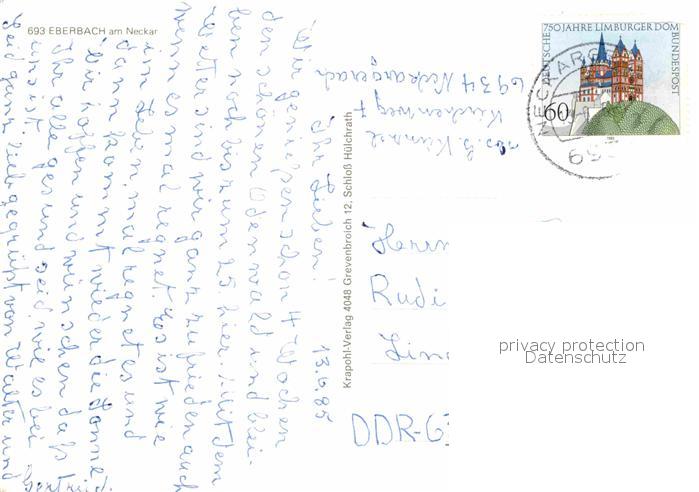 693 EBERBACH am Neckar
13.6.85
Ihr Lieben!
Wir geniesen schon 4 Wochen
den schönen Odenwald und blei-
ben noch bis zum 25 hier. Mit dem
Wetter sind wir ganz zufrieden auch
wenn es mal regnet. Es ist wie
im Leben, mal regnet es und
dann kommt wieder die Sonne
Wir hoffen und wünschen daß
Ihr alle gesund seid, wie es bei
uns ist.
Seid ganz lieb gegrüßt von Walter und
Gertrud.
Krapohl-Verlag 4048 Grevenbroich 12, Schloß Hülchrath
Kirchenweg
6934 Neckargerach
DEUTSCHE BUNDESPOST
750 JAHRE LIMBURGER DOM
60
1985
NECKARG
69
Herrn
Rudi
Lin
DDR-6
privacy protection
Datenschutz